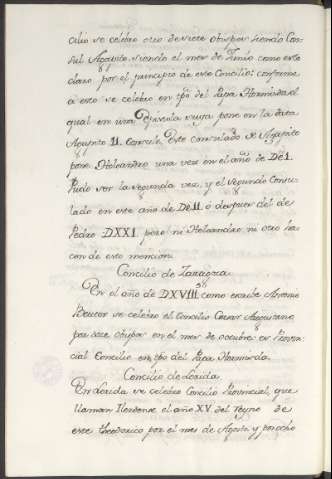 cilio se celebro otro de siete obispos siendo Con-
sul Agapito siendo el mes de Junio como este
claro por el principio de este Concilio: conforme
a esto se celebro en tpõ del Papa Hormisda el
qual en una Epistola suya pone en la data
Agapito II. consule. Este consulado de Agapito
pone Holeandro una vez en el año de D e I.
Pudo ser la segunda vez, y el segundo Consu-
lado en este año de D e II. ó despues del de
Pedro DXXI pero ni Holeandro ni otro ha-
cen de esto mencion.
Concilio de Zaragoza
En el año de DXVIII como escribe Antonio
Beuter se celebro el Concilio Cesar Augustano
por siete obispos en el mes de octubre es Provin-
cial Concilio en tpõ del Papa Hormisda.
Concilio de Lerida
En Lerida se celebro Concilio Provincial, que
llaman Ilerdense el año XV. del Reyno de
este theodorico por el mes de Agosto y por ocho